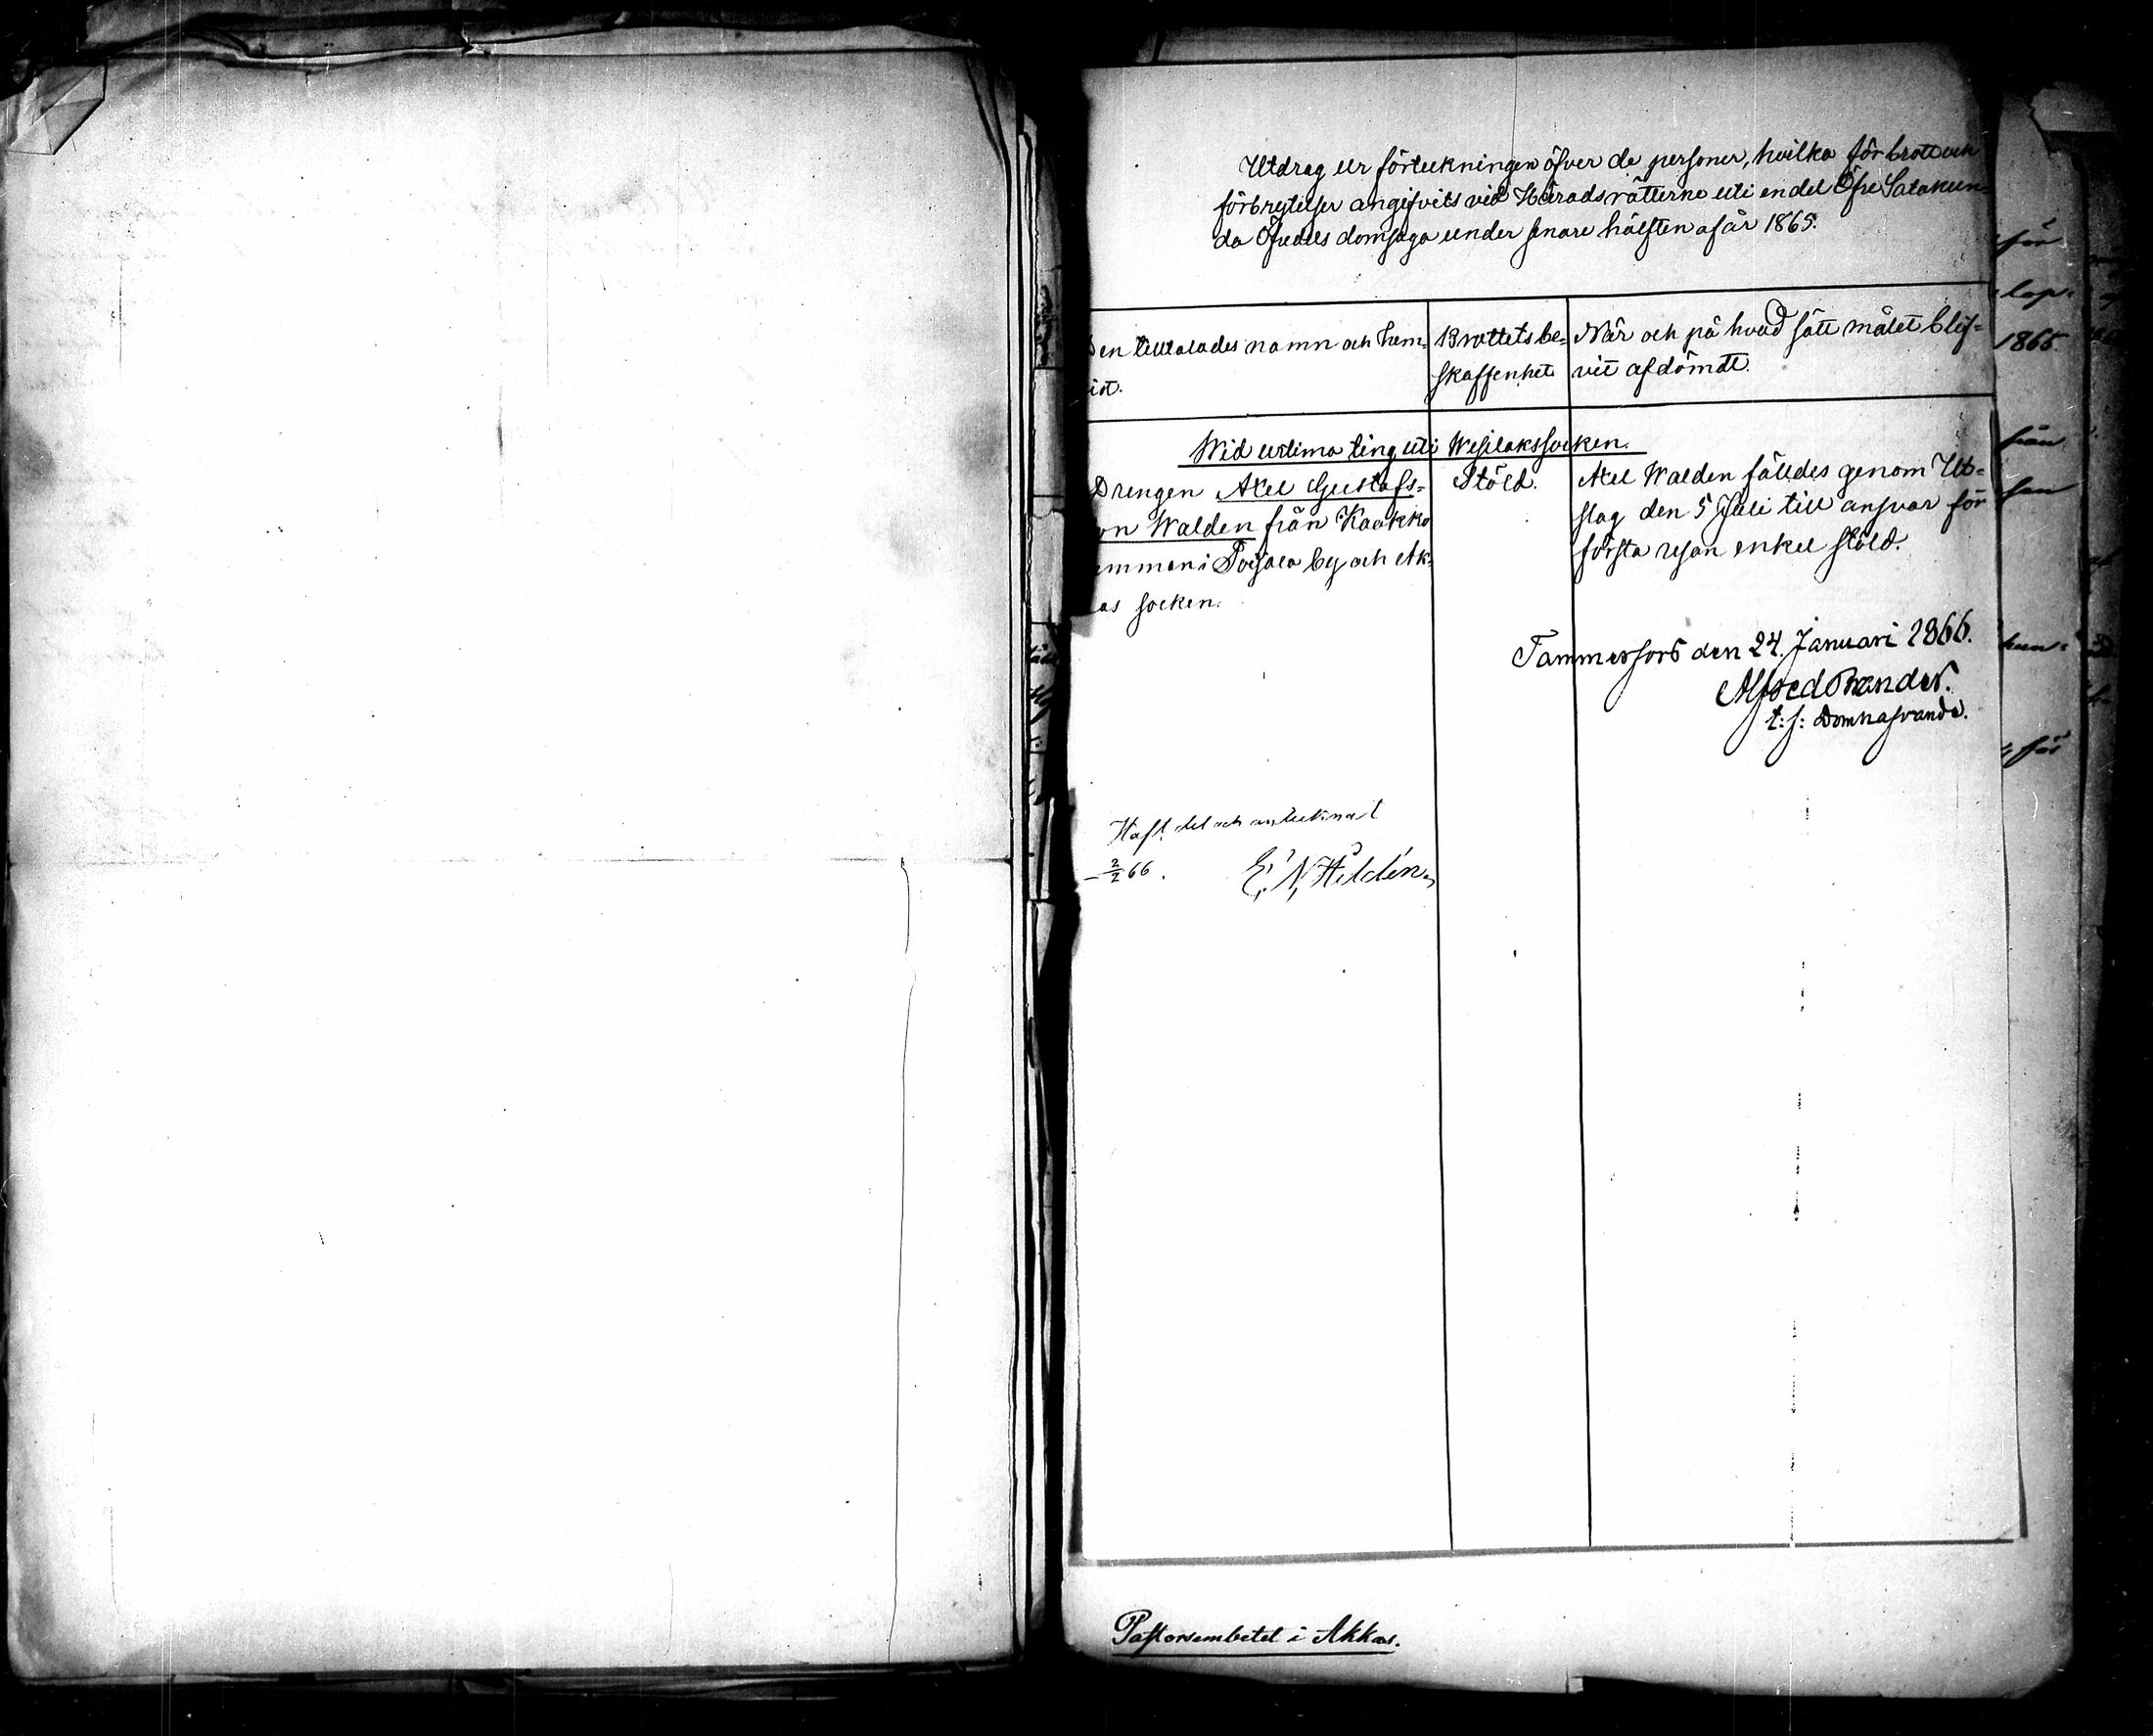 Utdrag ur förteckningen öfver de personer, hvilka för brott och
förbrytelser angifvits vid Häradsrätterne uti en del Öfre Satakun-
da Öfredels domsaga under senare hälften af år 1865.
Den tilltalades namn och hem-
ist.
Brottets be-
skaffenhet
När och på hvad sätt målet blif-
vit afdömdt.
Wid urtima ting uti Wesilaks socken.
Drengen Axel Gustafs-
on Walden från Kaakko
emman i Toijala by och Ak-
as socken.
Stöld.
Axel Walden fälldes genom Ut-
slag den 5 Juli till ansvar för
första resan enkel stöld.
Tammerfors den 24. Januari 1866.
Alfred Brander.
t: f: Domhafvande.
Haft del och antecknat
2/2 66.
E. N. Hildén
Pastorsembetet i Akkas.
för
1865.
från
son
kun-
för